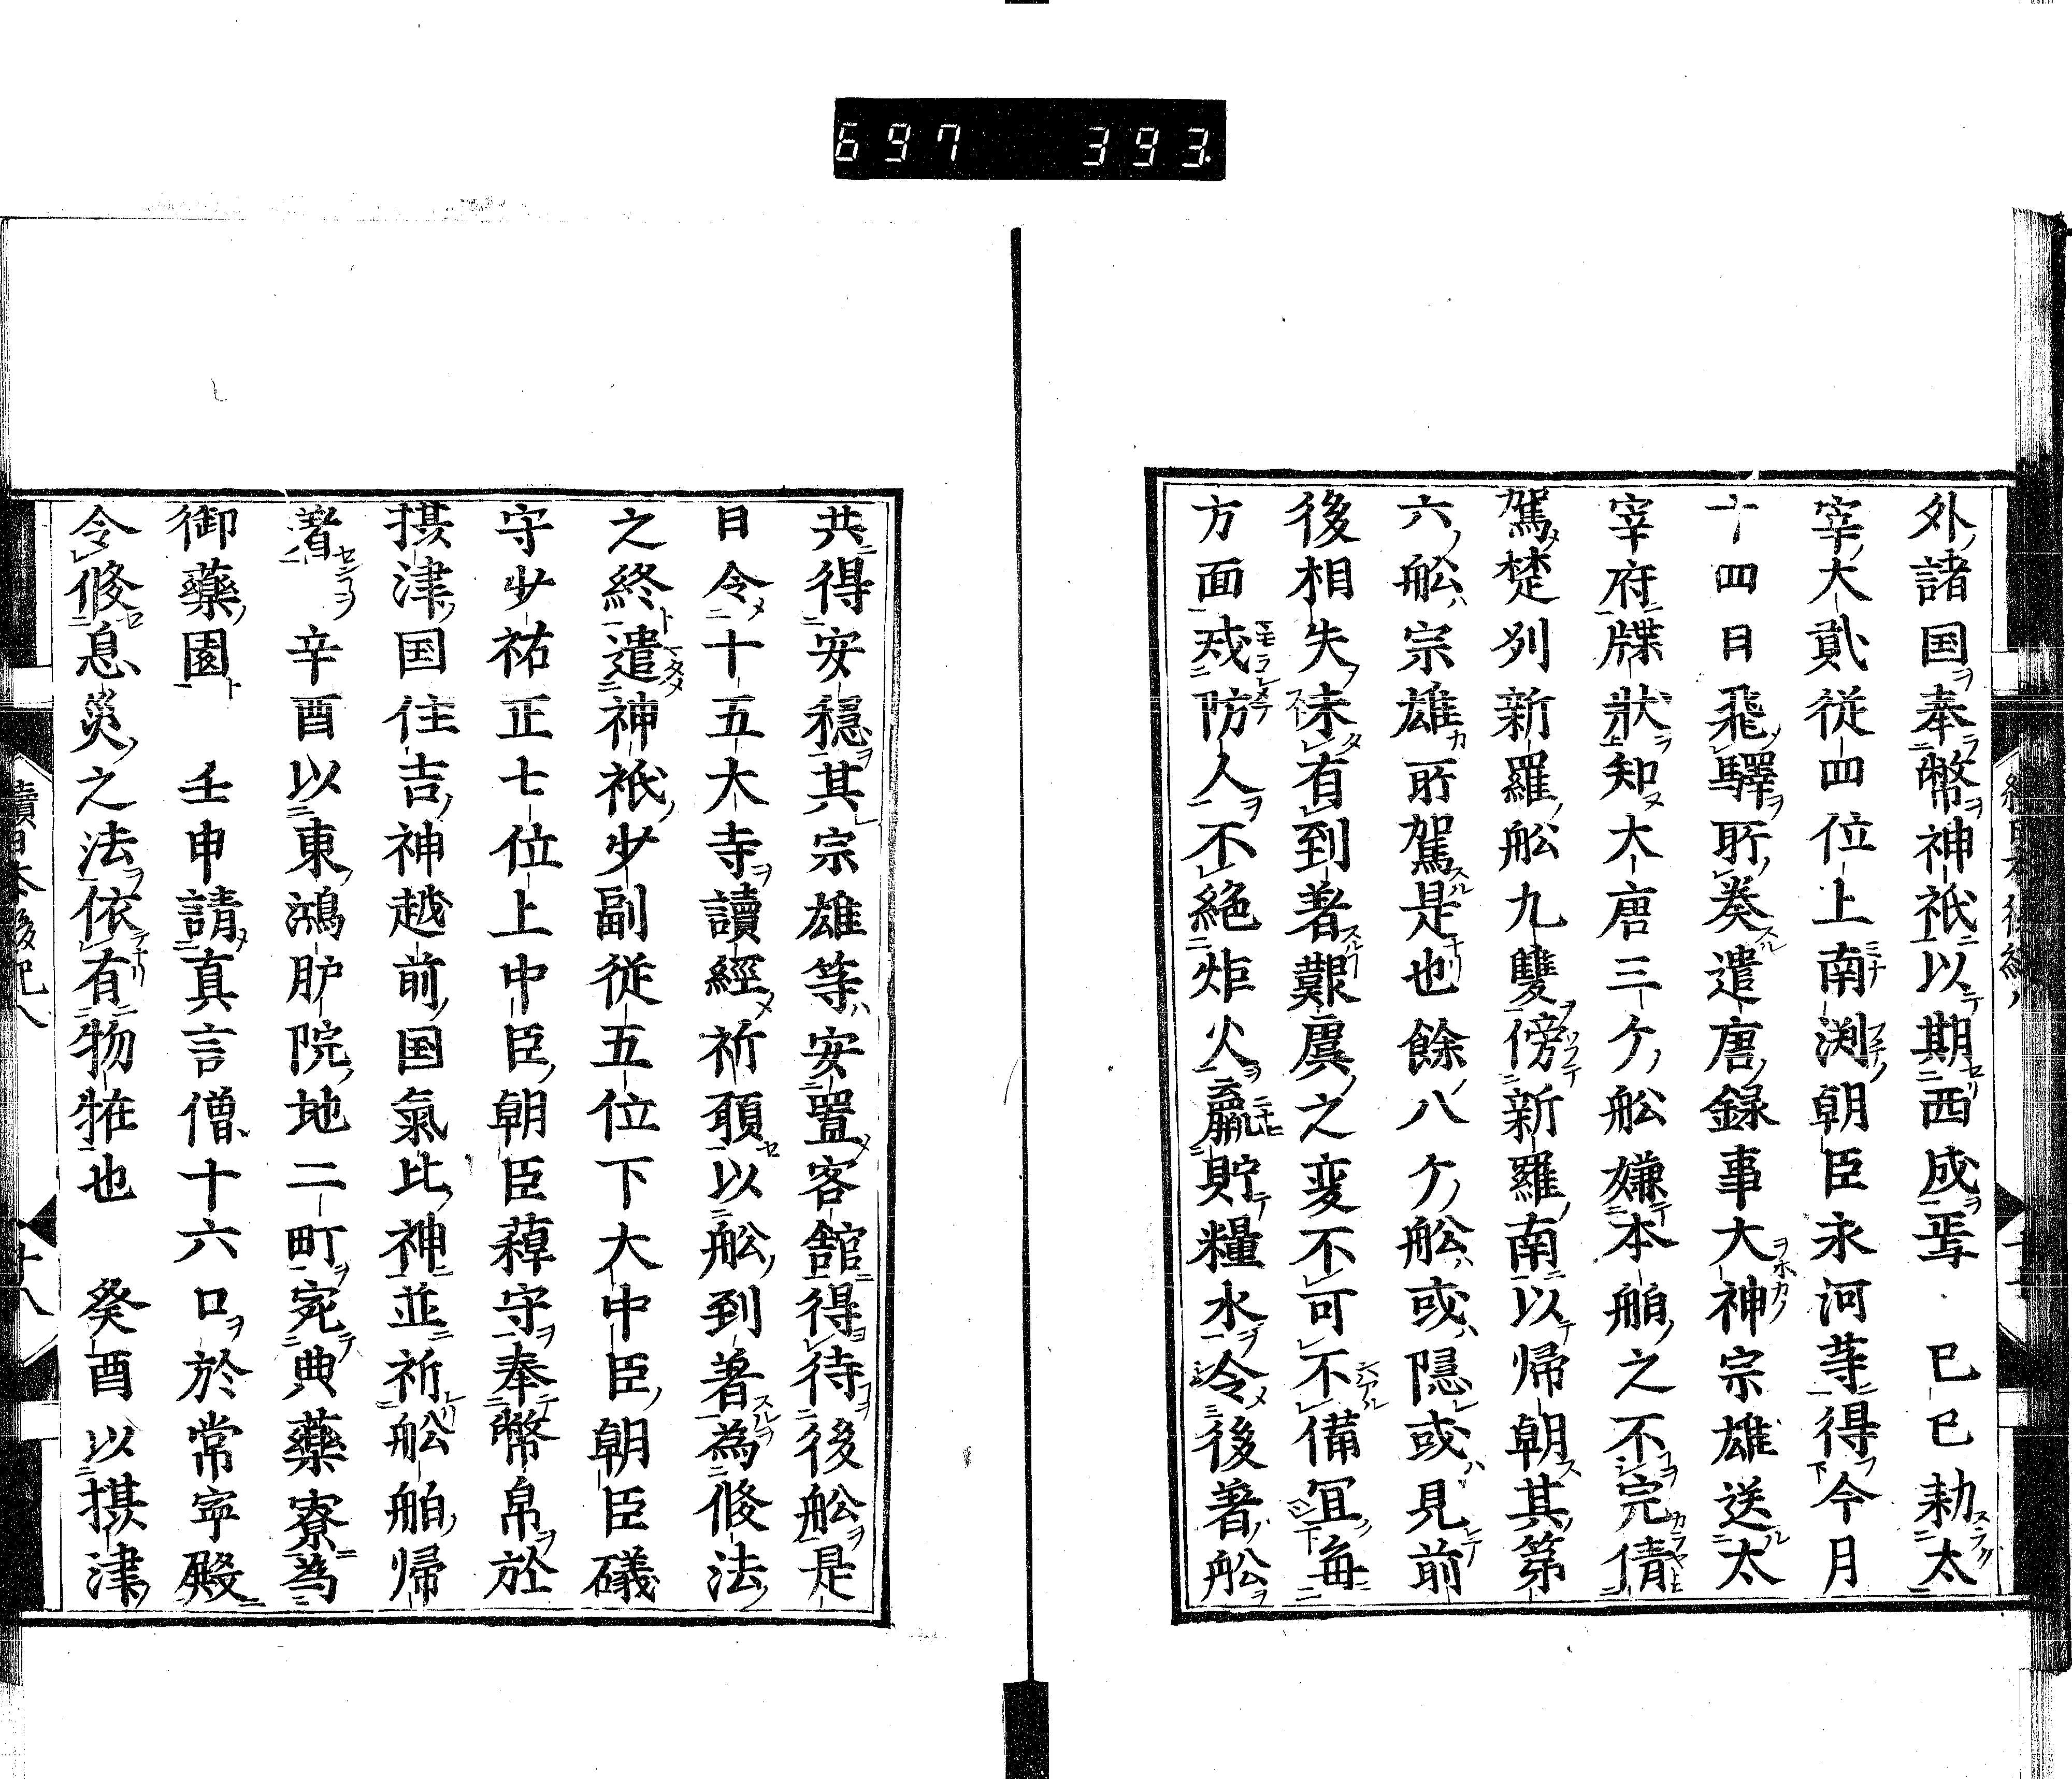 697 393
外諸国奉幣神祇以期西成焉　己巳勅太
宰大貳従四位上南渕朝臣永河等得今月
十四日飛驛所発遣唐録事大神宗雄送太
宰府牒状知大唐三ケ舩嫌本舶之不完倩
駕楚州新羅舩九隻傍新羅南以帰朝其第
六舩宗雄所駕是也餘八ケ舩或隠或見前
後相失未有到着艱虞之変不可不備冝毎
方面戒防人不絶炬火贏貯糧水令後著舩
共得安穏其宗雄等安置客舘得待後舩是
日令十五大寺讀經祈願以舩到著為修法
之終遣神祇少副従五位下大中臣朝臣礒
守少祐正七位上中臣朝臣薭守奉幣帛於
摂津国住吉神越前国氣比神並祈舩舶帰
著　辛酉以東鴻臚院地二町宛典藥寮為
御藥園　壬申請真言僧十六口於常寧殿
令修息災之法依有物恠也　癸酉以摂津